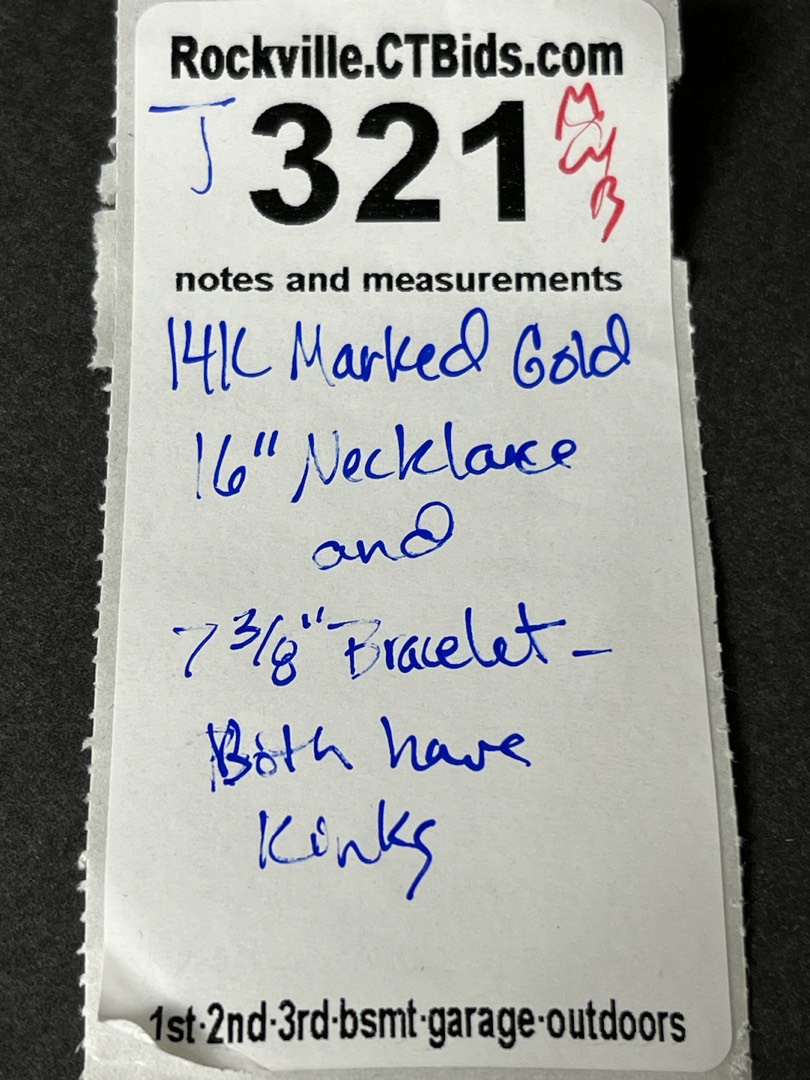 Rockville.CTBids.com
J 321
notes and measurements
14K Marked Gold
16" Necklace
and
7 3/8" Bracelet -
Both have
Kinks
1st·2nd·3rd·bsmt·garage·outdoors